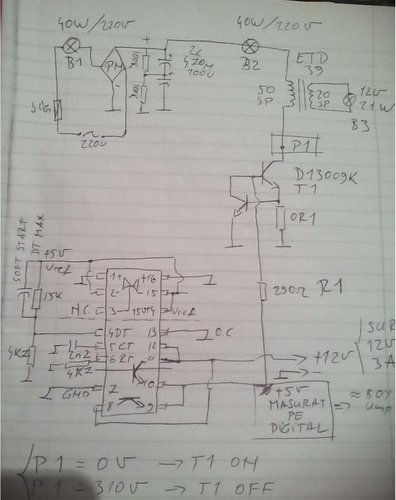 40W/220V
40W/220V
B1
PM
+
100K
100K
2x
470M
200V
B2
ETD
39
50
SP
20
SP
12V
21W
B3
220V
P1
D13009K
T1
0R1
SOFT START
DT MAX
+5V
Vref
15K
4K7
1+
+16
2-
15
N.C.
3
14
Vref
4 DT
13
O.C
5 CT
12
2n2
6 RT
11
4K7
GND
7
10
8
9
250Ω R1
+12V
SUR
12V
3A
+5V
MASURAT
PE
DIGITAL
P1 = 0V → T1 ON
P1 = 310V → T1 OFF